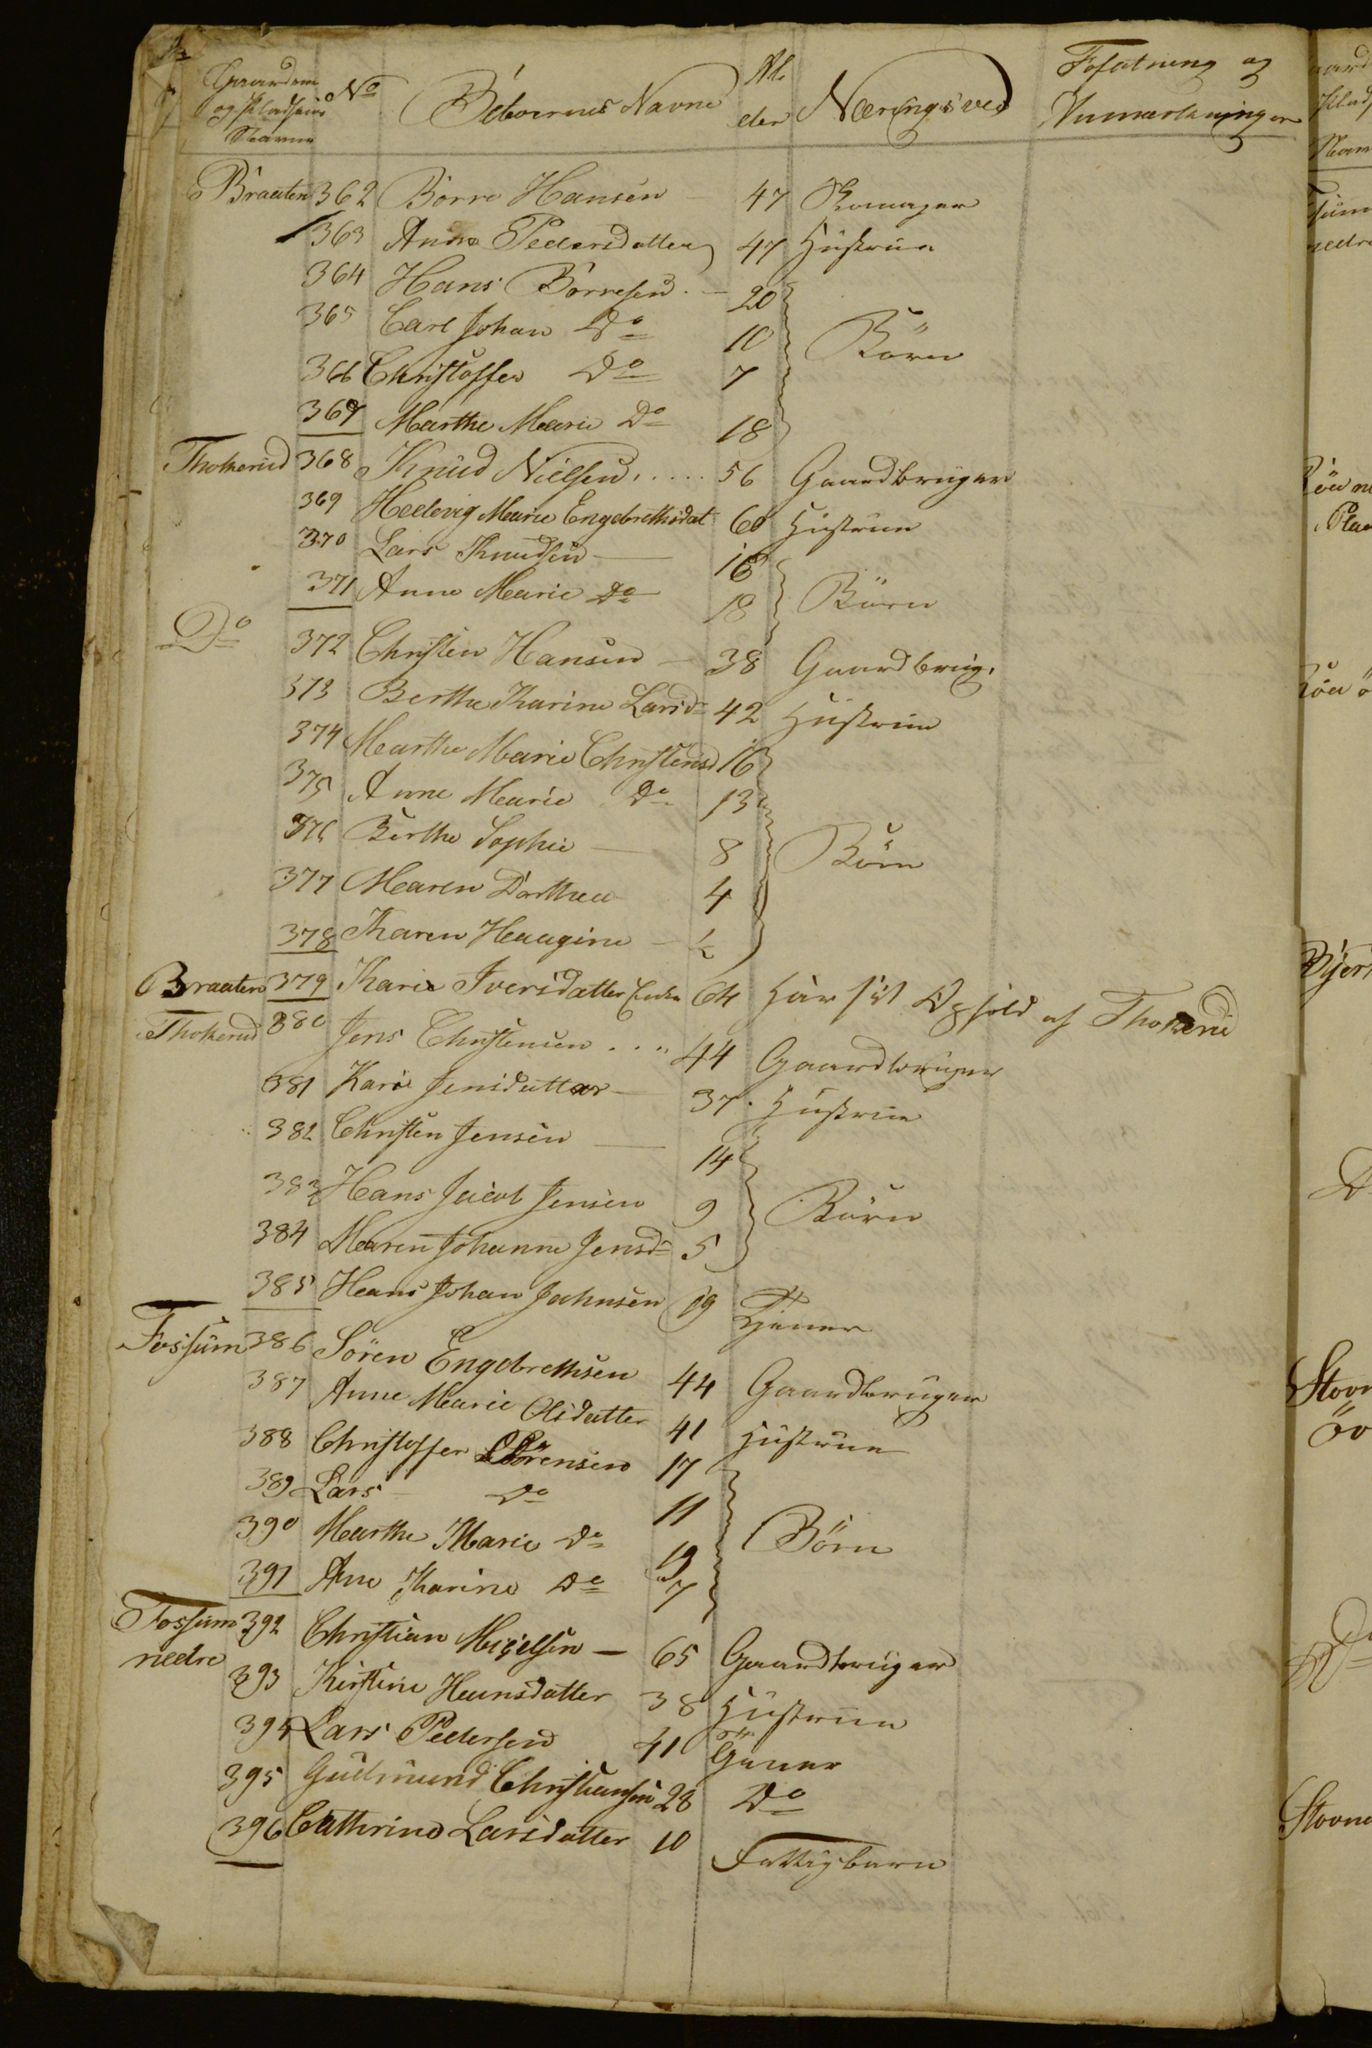 Gaardens og Pladsens Navne No Beboernes Navne Al der Næringsved Fofatning og Anmærkninger
Braaten 362 Börre Hansen 47 Skomager
363 Anne Pedersdatter 47 Hustrue
364 Hans Börresen 20
365 Carl Johan Do 10 Börn
366 Christoffer Do 7
367 Marthe Marie Do 18
Thokerud 368 Knud Nielsen 56 Gaardbruger
369 Hedevig Marie Engebrethsdat 60 Hustrue
370 Lars Knudsen 16
371 Anne Marie Do 18 Börn
Do 372 Christen Hansen 38 Gaardbrug.
373 Berthe Karine Larsd 42 Hustrue
374 Marthe Marie Christensd 16
375 Anne Marie Do 13
376 Berthe Sophie 8 Börn
377 Maren Dorthea 4
378 Karen Haagine ½
Braaten 379 Kari Iversdatter Enke 64 Har sit Ophold af Thokerud
Thokerud 380 Jens Christensen 44 Gaardbruger
381 Kari Jensdatter 37 Hustrue
382 Christen Jensen 14
383 Hans Jacob Jensen 9 Börn
384 Maren Johanne Jensd 5
385 Hans Johan Jahnsen 19 Tjener
Fossum 386 Sören Engebrethsen 44 Gaardbruger
387 Anne Marie Olsdatter 41 Hustrue
388 Christoffer Sörensen 17
389 Lars Do 11
390 Marthe Marie Do 19 Börn
391 Ane Karine Do 7
Fossum nedre 392 Christian Migelsen 65 Gaardbruger
393 Kirstine Hansdatter 38 Hustrue
394 Lars Pedersen 41 Tjener
395 Gudmund Christiansen 28 Do
396 Cathrine Larsdatter 10 Fattigbarn